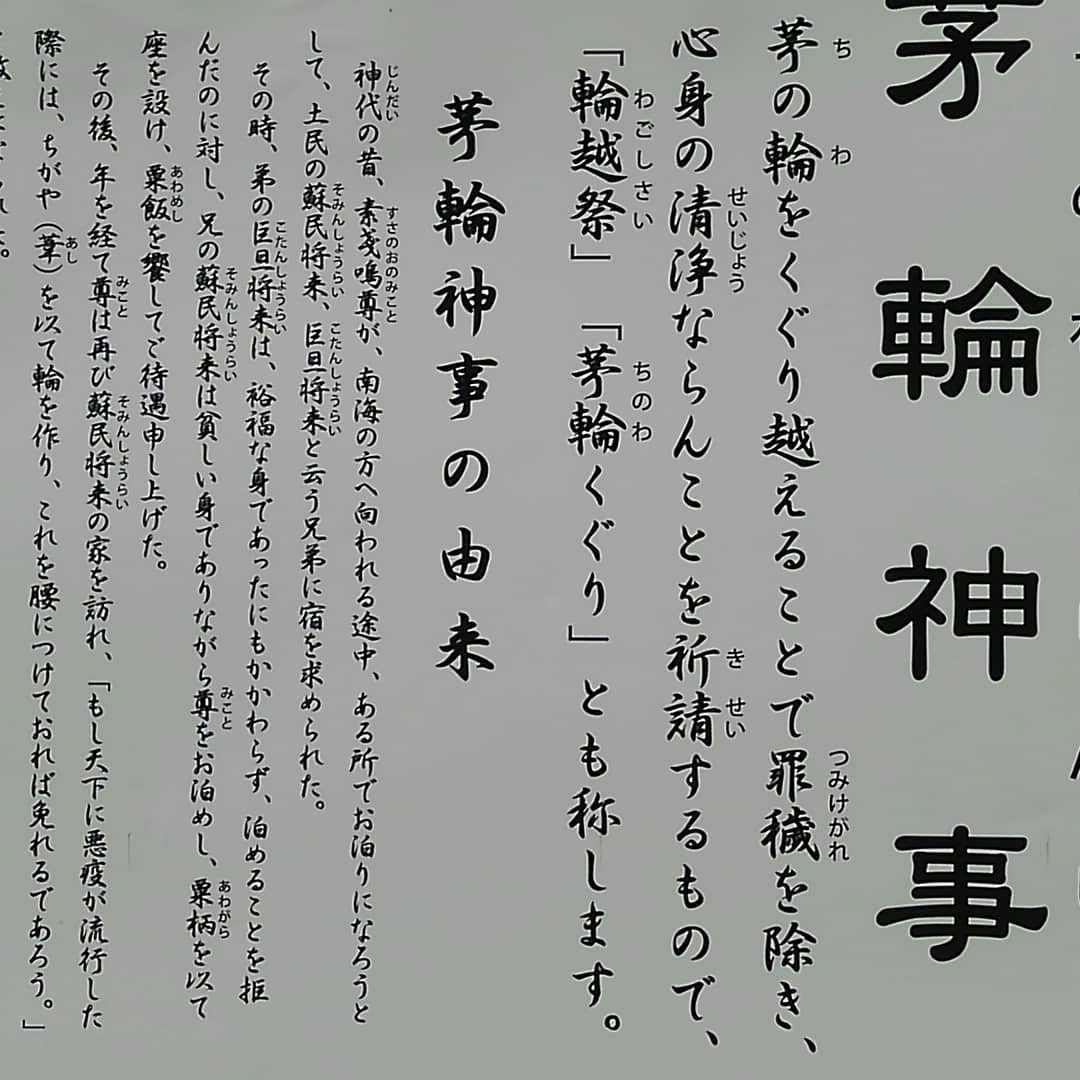 茅輪神事
茅の輪をくぐり越えることで罪穢を除き、
心身の清浄ならんことを祈請するもので、
「輪越祭」「茅輪くぐり」とも称します。
茅輪神事の由来
神代の昔、素戔嗚尊が、南海の方へ向われる途中、ある所でお泊りになろうと
して、土民の蘇民将来、巨旦将来と云う兄弟に宿を求められた。
その時、弟の巨旦将来は、裕福な身であったにもかかわらず、泊めることを拒
んだのに対し、兄の蘇民将来は貧しい身でありながら尊をお泊めし、粟柄を以て
座を設け、粟飯を饗してご待遇申し上げた。
その後、年を経て尊は再び蘇民将来の家を訪れ、「もし天下に悪疫が流行した
際には、ちがや（茅）を以て輪を作り、これを腰につけておれば免れるであろう。」